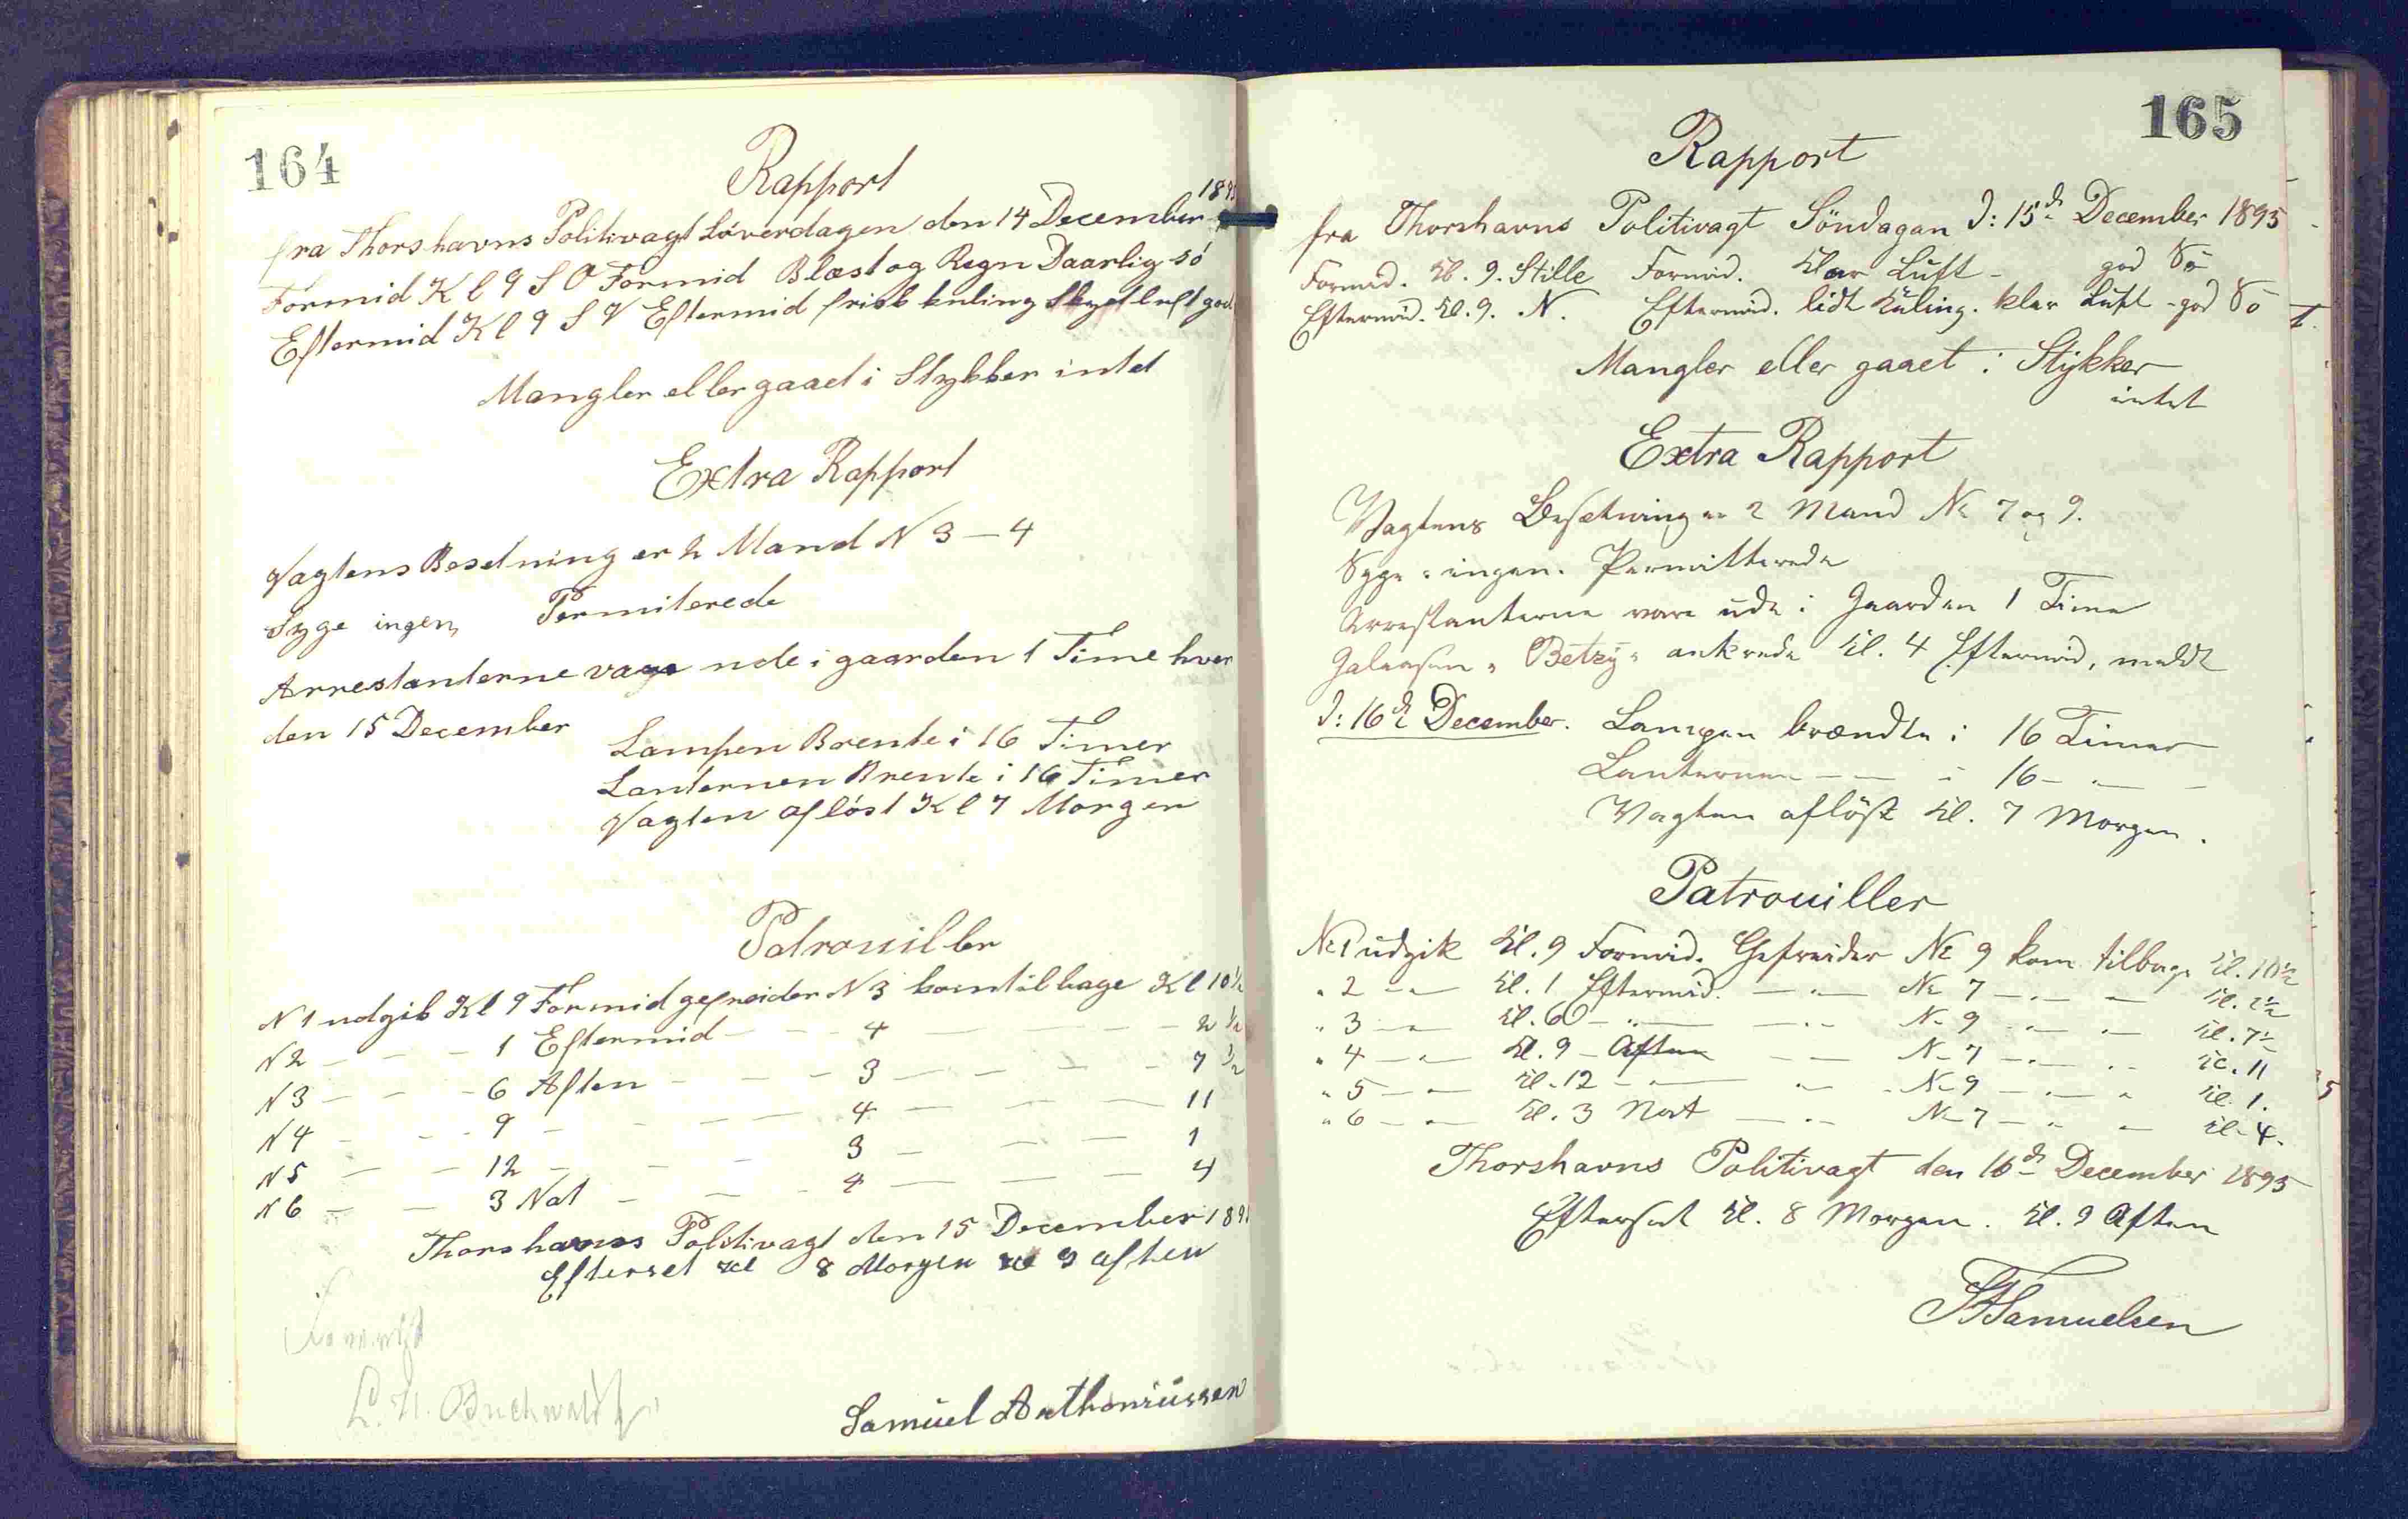 164
Rapport
1895
fra Thorshavns Politivagt Löverdagen den 14 December
Formid Kl 9 S O Formid Blæst og Regn Daarlig Sö
Eftermid Kl 9 S V Eftermid frisk kuling Skyet luft god
Mangler eller gaaet i Stykker intet
Extra Rapport
Vagtens Besetning er 2 Mand N 3 — 4
Syge ingen, Permiterede
Arrestanterne vare ude i gaarden 1 Time hver
den 15 December
Lampen Brente i 16 Timer
Lanternen Brente i 16 Timer
Vagten aflöst Kl 7 Morgen
Patrouiller
N 1 udgik Kl 9 Formid gefreider N 3 kom tilbage Kl 10½
N 2 — — — 1 Eftermid — — — 4 — — — — 2½
N 3 — — — 6 Aften — — — 3 — — — — 7½
N 4 — — — 9 — — — — 4 — — — 11
N 5 — — 12 — — — 3 — — — 1
N 6 — — 3 Nat — — — 4 — — — 4
Thorshavns Politivagt den 15 December 189
Efterset Kl 8 Morgen Kl 9 aften
L. H. Buchwaldt
Samüel Anthoniüssen
165
Rapport
fra Thorshavns Politivagt Söndagen D: 15d December 1895
Formid. Kl. 9. Stille Formid. Klar Luft - god Sö
Eftermid. Kl. 9. N. Eftermid. lidt Küling. klar Luft - god Sö
Mangler eller gaaet i Stykker
intet
Extra Rapport
Vagtens Besætning er 2 Mand No 7 og 9.
Syge: ingen. Permitterede
Arrestanterne vare ude i Gaarden 1 Time
Galeasen "Betzy" ankrede Kl. 4 Eftermid, meldt
D: 16d December. Lampen brændte i 16 Timer
Lanternen — — i 16 - " —
Vagten aflöst Kl. 7 Morgen.
Patrouiller
No 1 udgik Kl. 9 Formid. Gefreider No 9 kom tilbage Kl. 10½
" 2 — " — Kl. 1 Eftermid. — " — No 7 — " — " — Kl. 2½
" 3 — " — Kl. 6 — " — — " — No 9 — " — " — Kl. 7½
" 4 — " — Kl. 9 — Aften — " — No 7 — " — " — Kl. 11
" 5 — " — Kl. 12 — " — — " — No 9 — " — " — Kl. 1.
" 6 — " — Kl. 3 Nat — " — No 7 — " — " — Kl. 4.
Thorshavns Politivagt den 16d December 1895
Efterset Kl. 8 Morgen. Kl. 9 Aften
Samuelsen